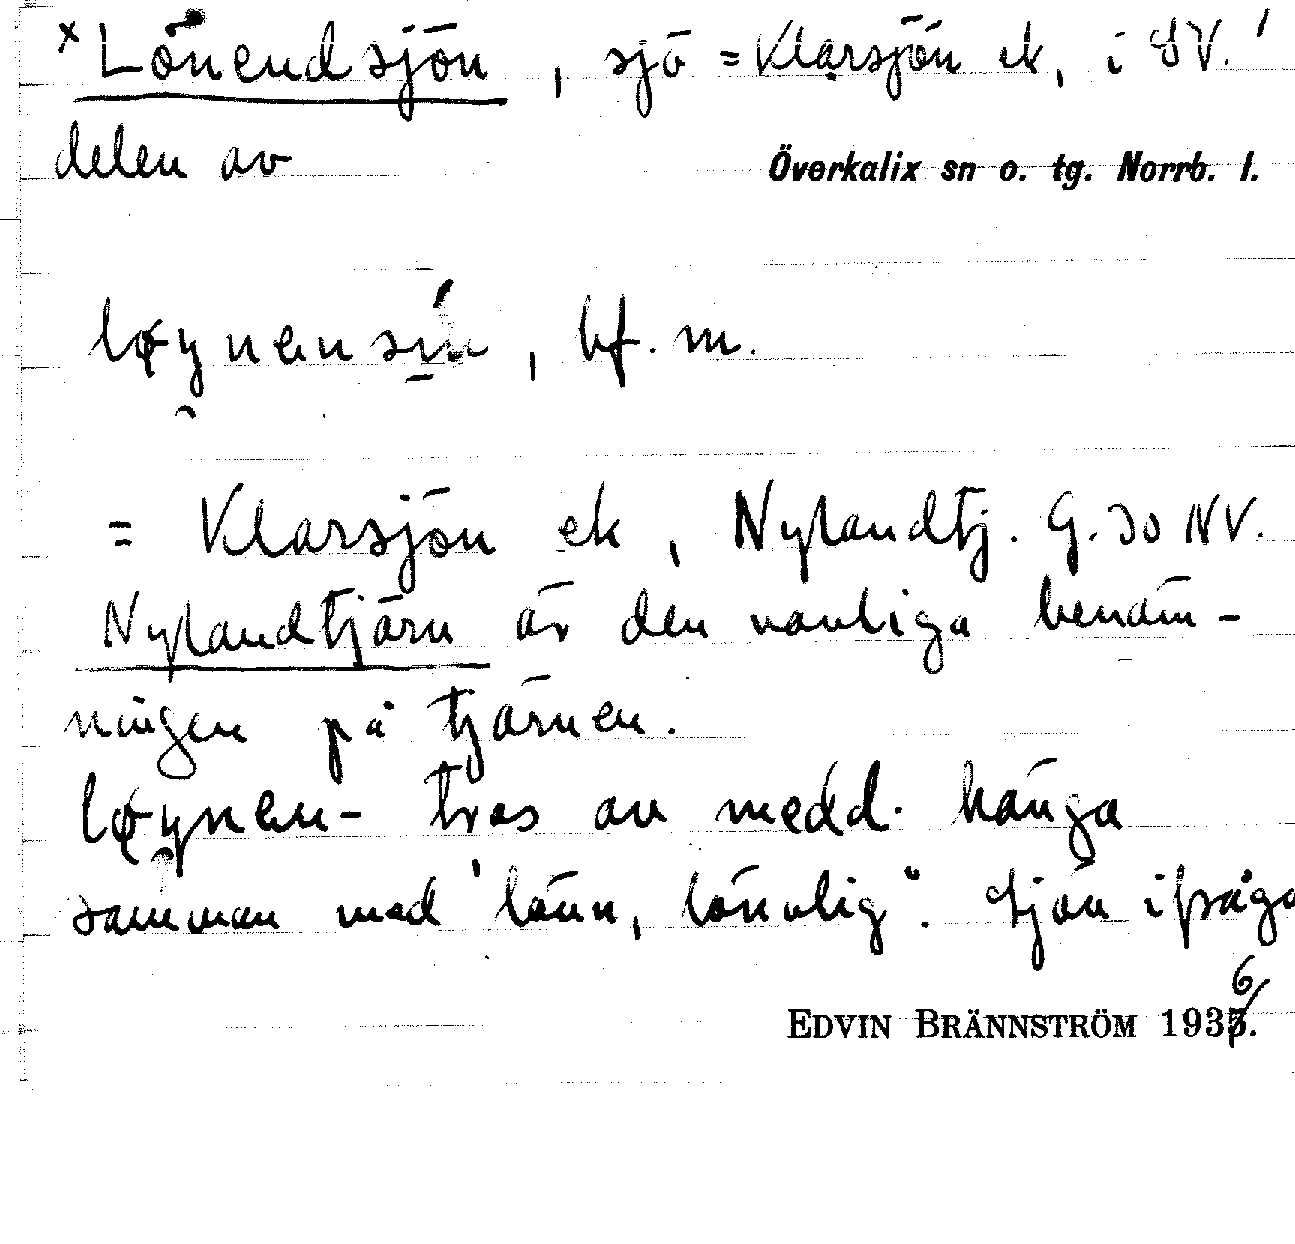 × Lönendsjön, sjö = Klarsjön ek, i SV.
delen av
Överkalix sn o. tg. Norrb. l.
løynensı̄n, bf. m.
= Klarsjön ek, Nylandtj. G. 30 NV.
Nylandtjärn är den vanliga benäm-
ningen på tjärnen.
løynen- tros av medd. hänga
samman med "lönn, lönnlig". Sjön ifråga
EDVIN BRÄNNSTRÖM 1936.